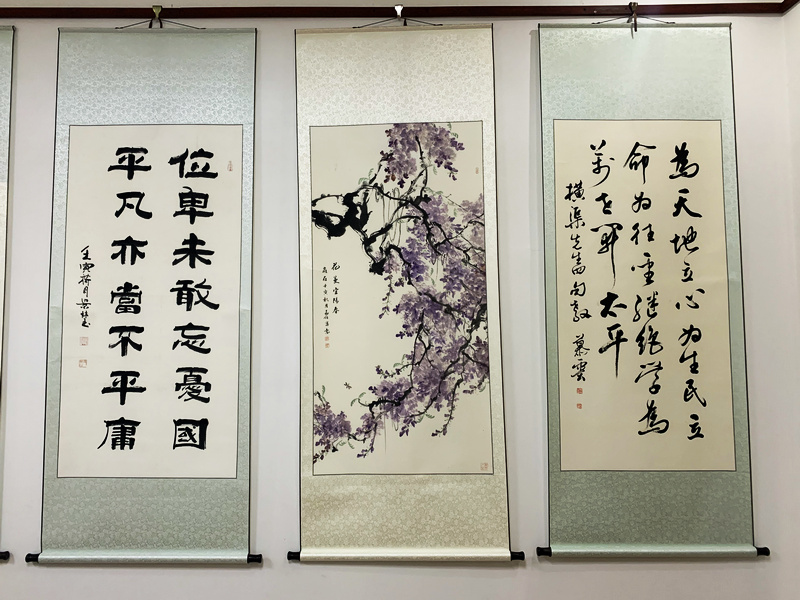 位卑未敢忘憂國
平凡亦當不平庸
壬寅荷月
花蔓宜陽春
為天地立心为生民立
命为往聖繼絕學為
萬世開太平
橫渠先生句 慕雲